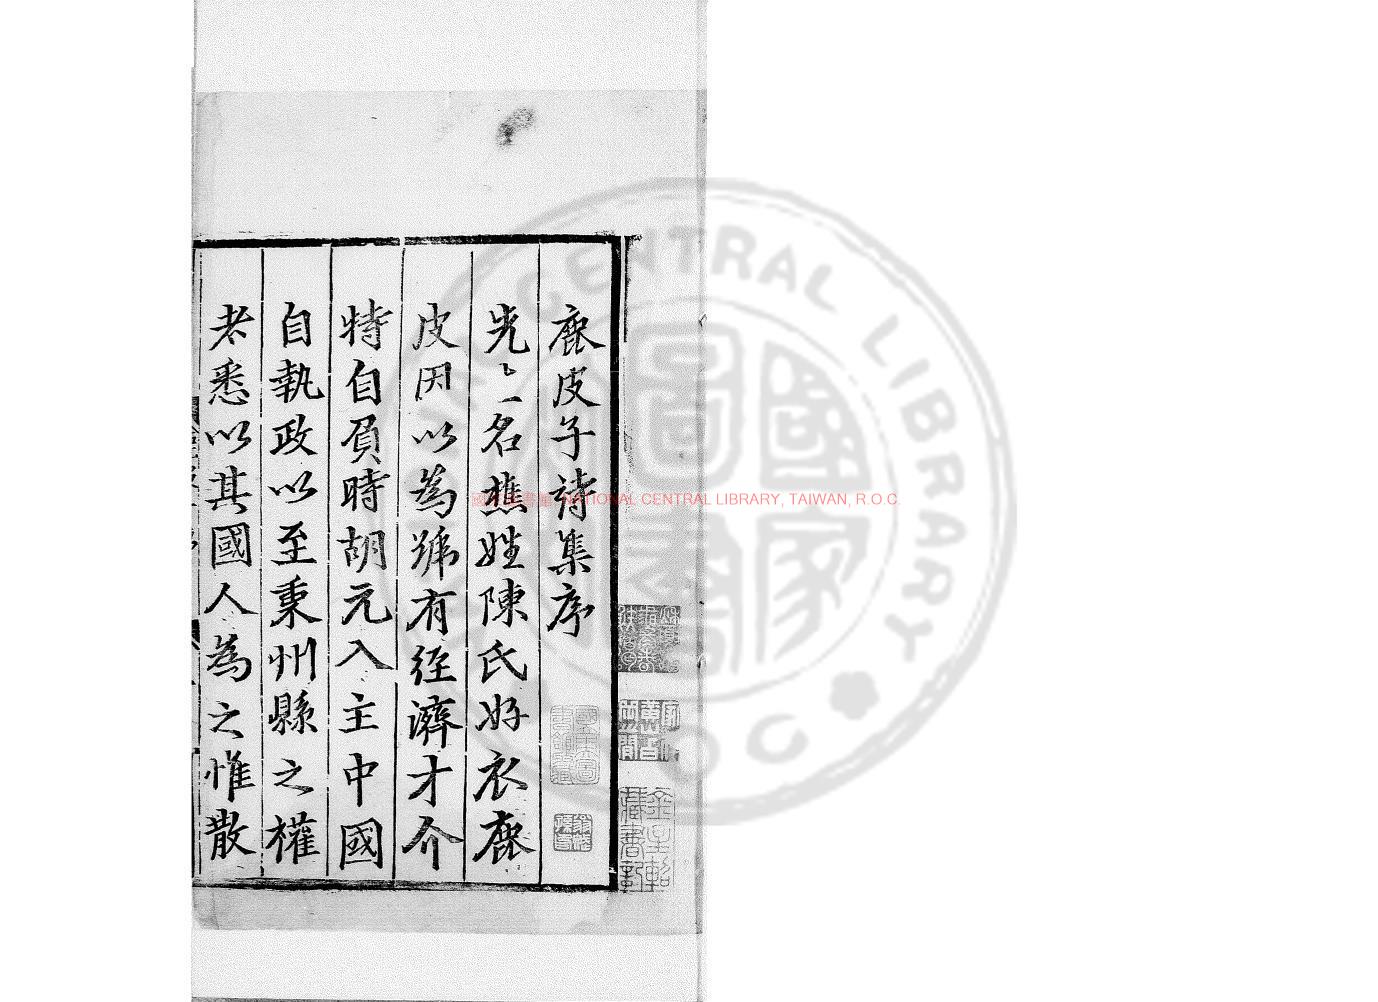 鹿皮子詩集序
先〻名樵姓陳氏好衣鹿
皮因以為號有經濟才介
特自負時胡元入主中國
自執政以至秉州縣之權
者悉以其國人為之惟散
NATIONAL CENTRAL LIBRARY, TAIWAN, R.O.C.
CENTRAL LIBRARY